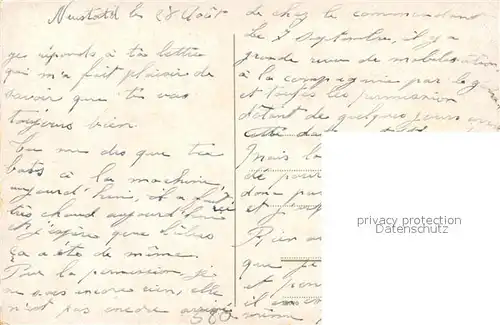 Neustadt le 28 Août
je réponds à ta lettre
qui m'a fait plaisir de
savoir que tu vas
toujours bien.
Tu me dis que tu
bats à la machine
aujourd'hui, il a fait
très chaud aujourd'hui
et j'espère que
ça a été de même.
Pour la permission je
ne sais encore rien, elle
n'est pas encore
de chez le commandant
le 7 Septembre, il y a
grande revue de mobilisation
à la compagnie par le
et toutes les permission
de quelques jours
Mais la
de pour
donc pas
et
Rien
que je
et
il
même
privacy protection
Datenschutz